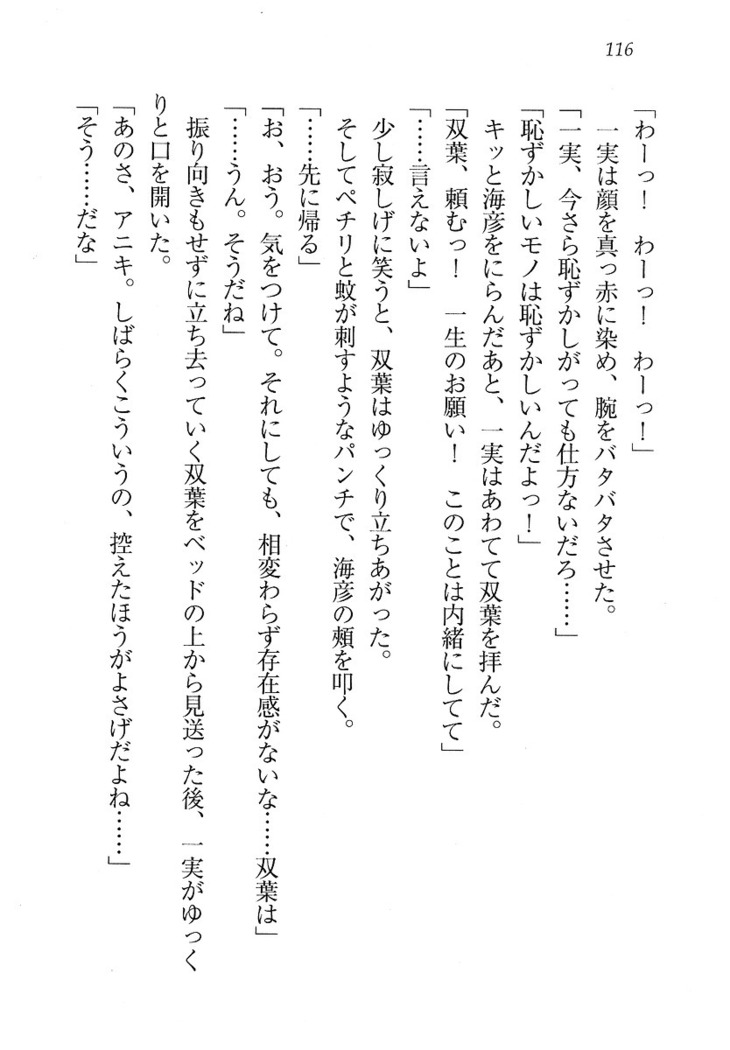 116
「わーっ！　わーっ！　わーっ！」
　一実は顔を真っ赤に染め、腕をバタバタさせた。
「一実、今さら恥ずかしがっても仕方ないだろ……」
「恥ずかしいモノは恥ずかしいんだよっ！」
　キッと海彦をにらんだあと、一実はあわてて双葉を拝んだ。
「双葉、頼むっ！　一生のお願い！　このことは内緒にしてて」
「……言えないよ」
　少し寂しげに笑うと、双葉はゆっくり立ちあがった。
　そしてペチリと蚊が刺すようなパンチで、海彦の頰を叩く。
「……先に帰る」
「お、おう。気をつけて。それにしても、相変わらず存在感がないな……双葉は」
「……うん。そうだね」
　振り向きもせずに立ち去っていく双葉をベッドの上から見送った後、一実がゆっく
りと口を開いた。
「あのさ、アニキ。しばらくこういうの、控えたほうがよさげだよね……」
「そう……だな」